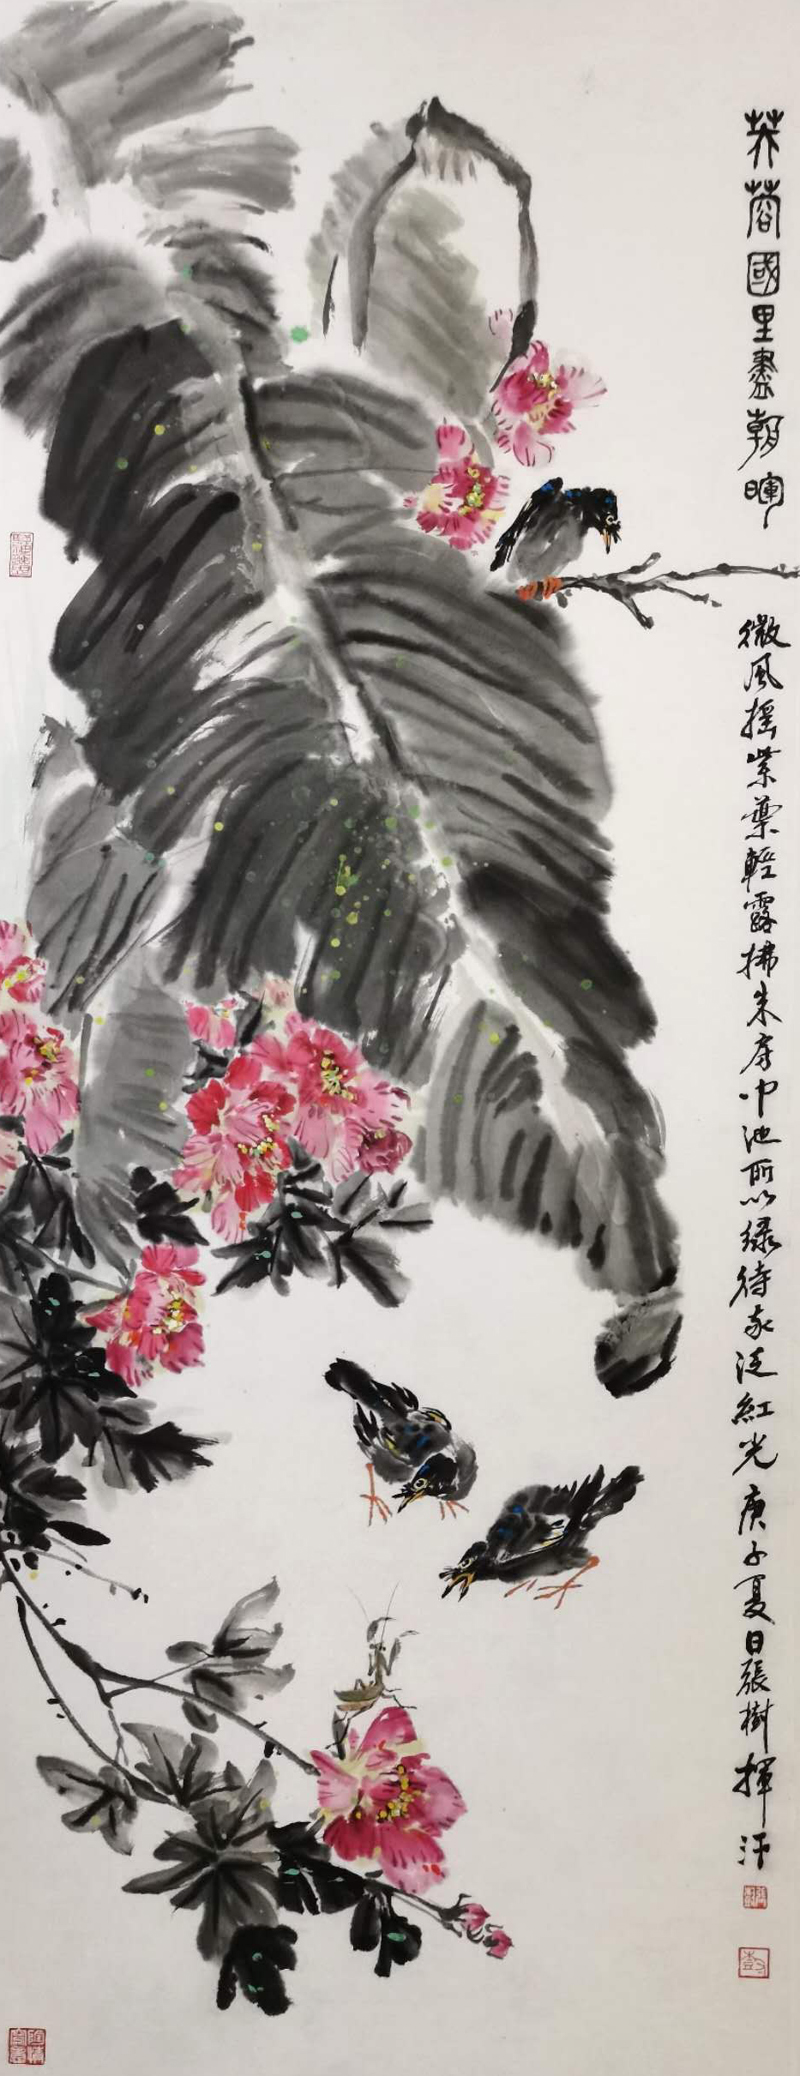 芙蓉國里盡朝暉
微風搖紫葉輕露拂朱房中池所以綠待我泛紅光庚子夏日張樹揮汗